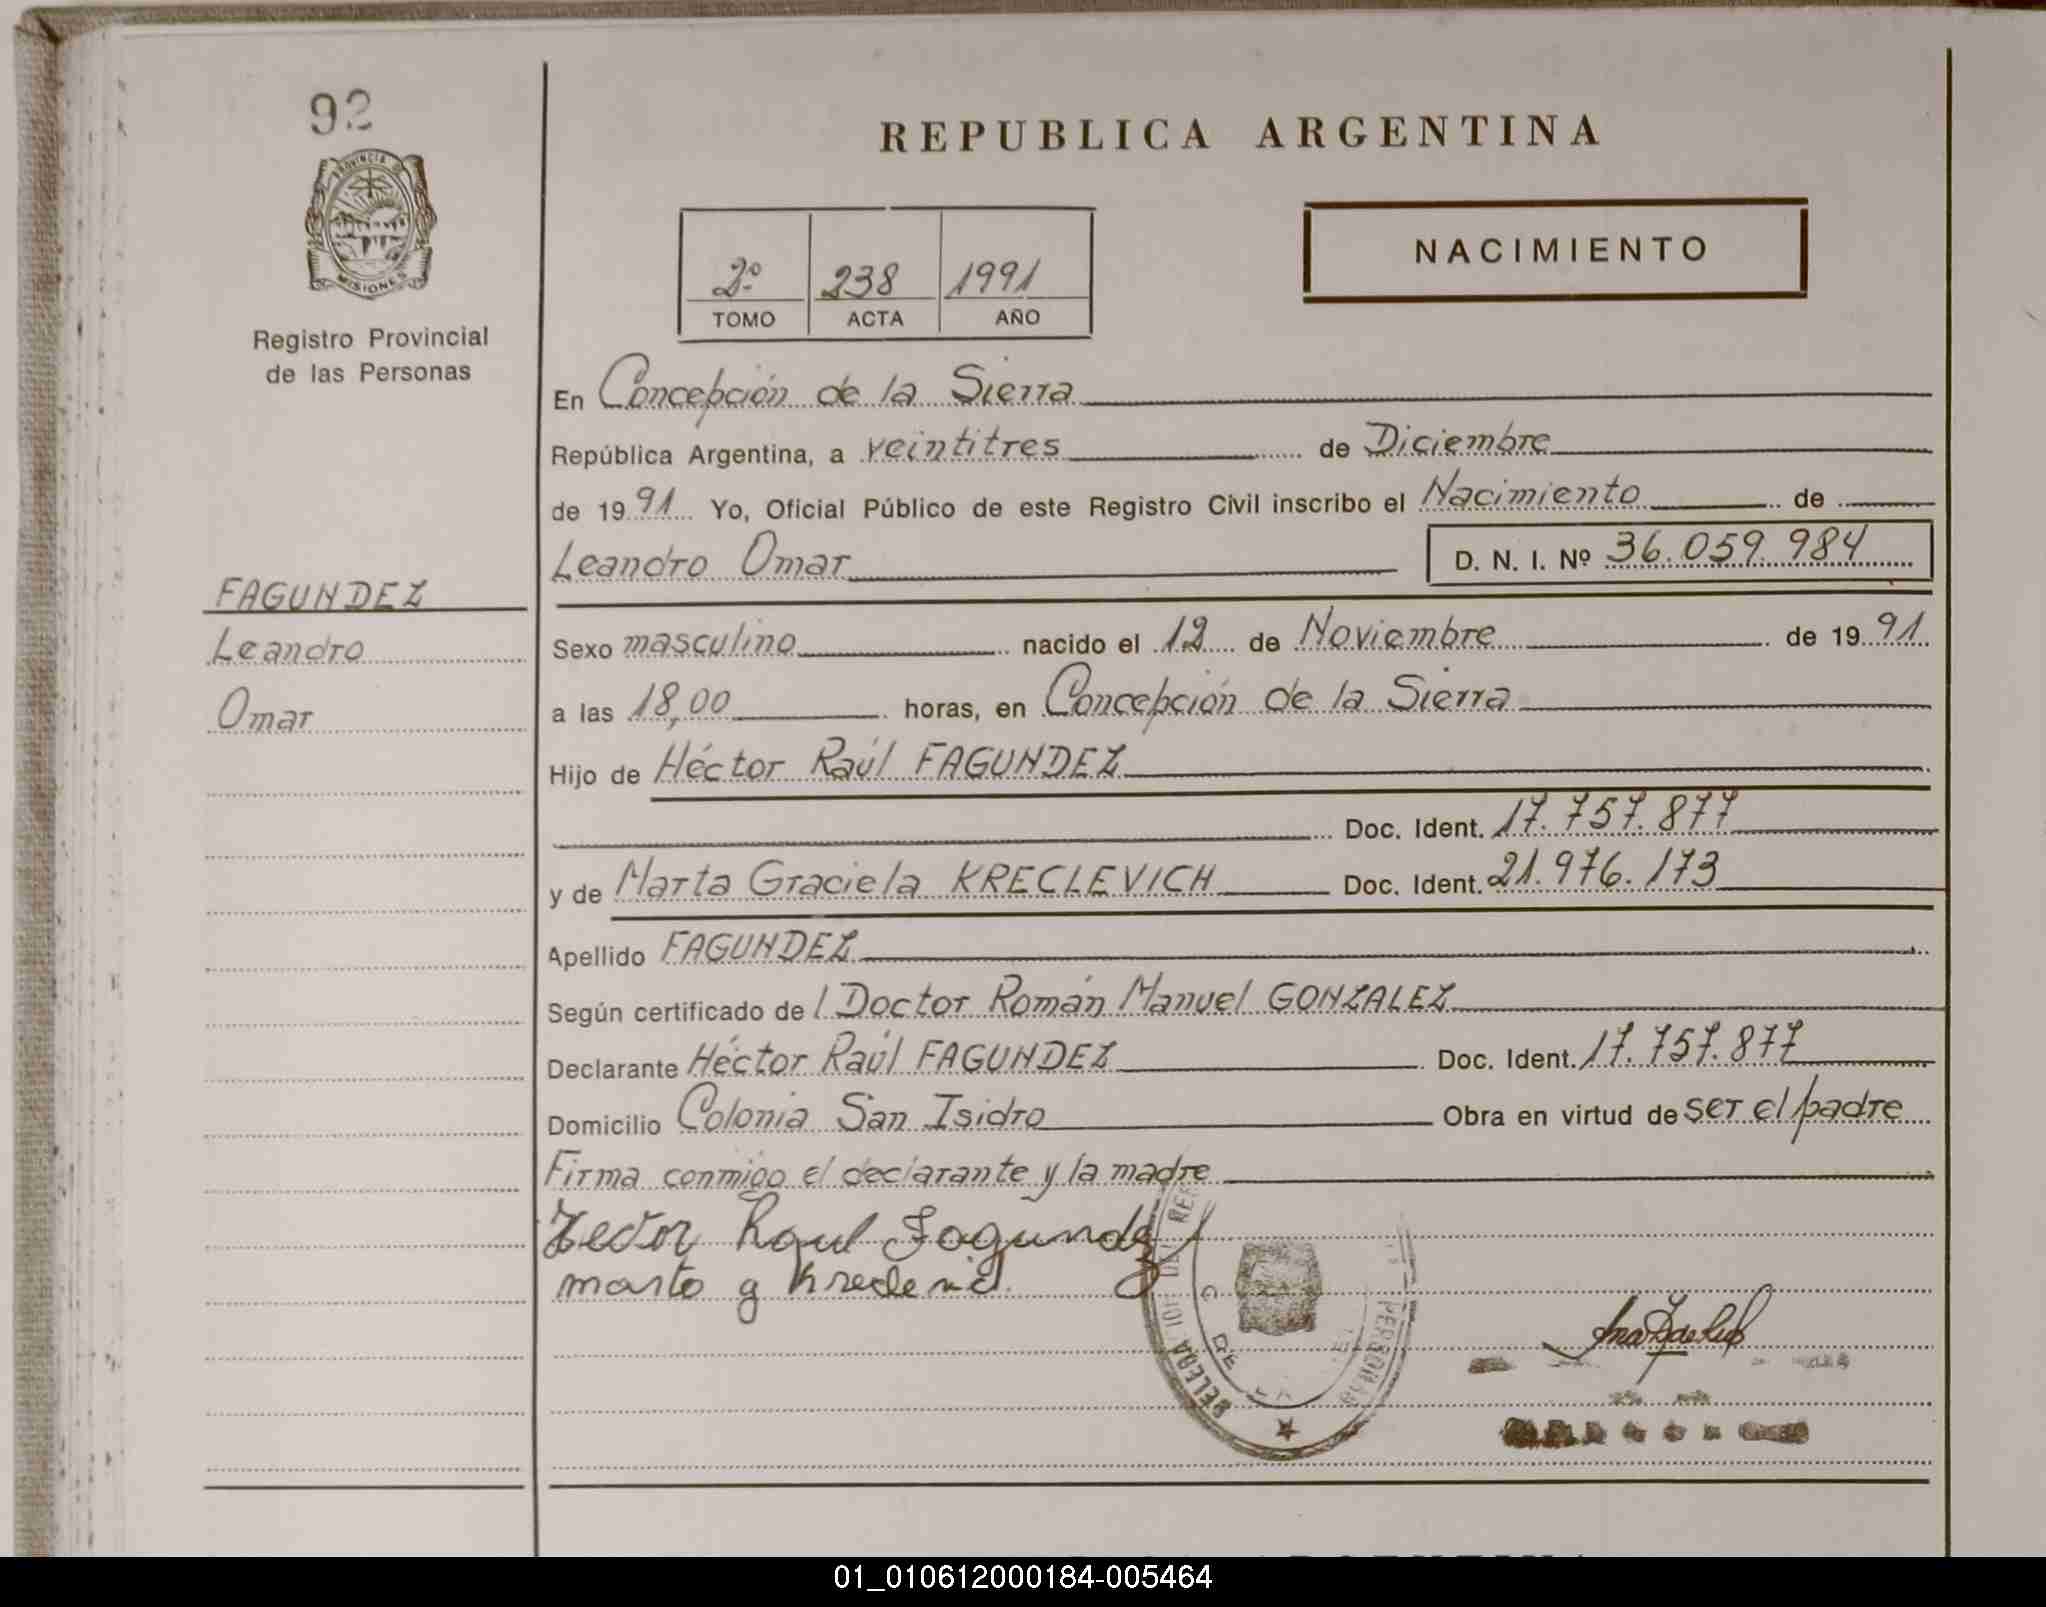 92
PROVINCIA DE
MISIONES
Registro Provincial
de las Personas
REPUBLICA ARGENTINA
NACIMIENTO
2º 238 1991
TOMO ACTA AÑO
En Concepción de la Sierra
República Argentina, a veintitres de Diciembre
de 1991 Yo, Oficial Público de este Registro Civil inscribo el Nacimiento de
Leandro Omar D. N. I. Nº 36.059.984
FAGUNDEZ
Leandro
Omar
Sexo masculino nacido el 12 de Noviembre de 1991
a las 18,00 horas, en Concepción de la Sierra
Hijo de Héctor Raúl FAGUNDEZ
Doc. Ident. 17.757.877
y de Marta Graciela KRECLEVICH Doc. Ident. 21.976.173
Apellido FAGUNDEZ
Según certificado de l Doctor Román Manuel GONZALEZ
Declarante Héctor Raúl FAGUNDEZ Doc. Ident. 17.757.877
Domicilio Colonia San Isidro Obra en virtud de ser el padre
Firma conmigo el declarante y la madre
Hector Raul Fagundez
marta g
PERSONAS
01_010612000184-005464